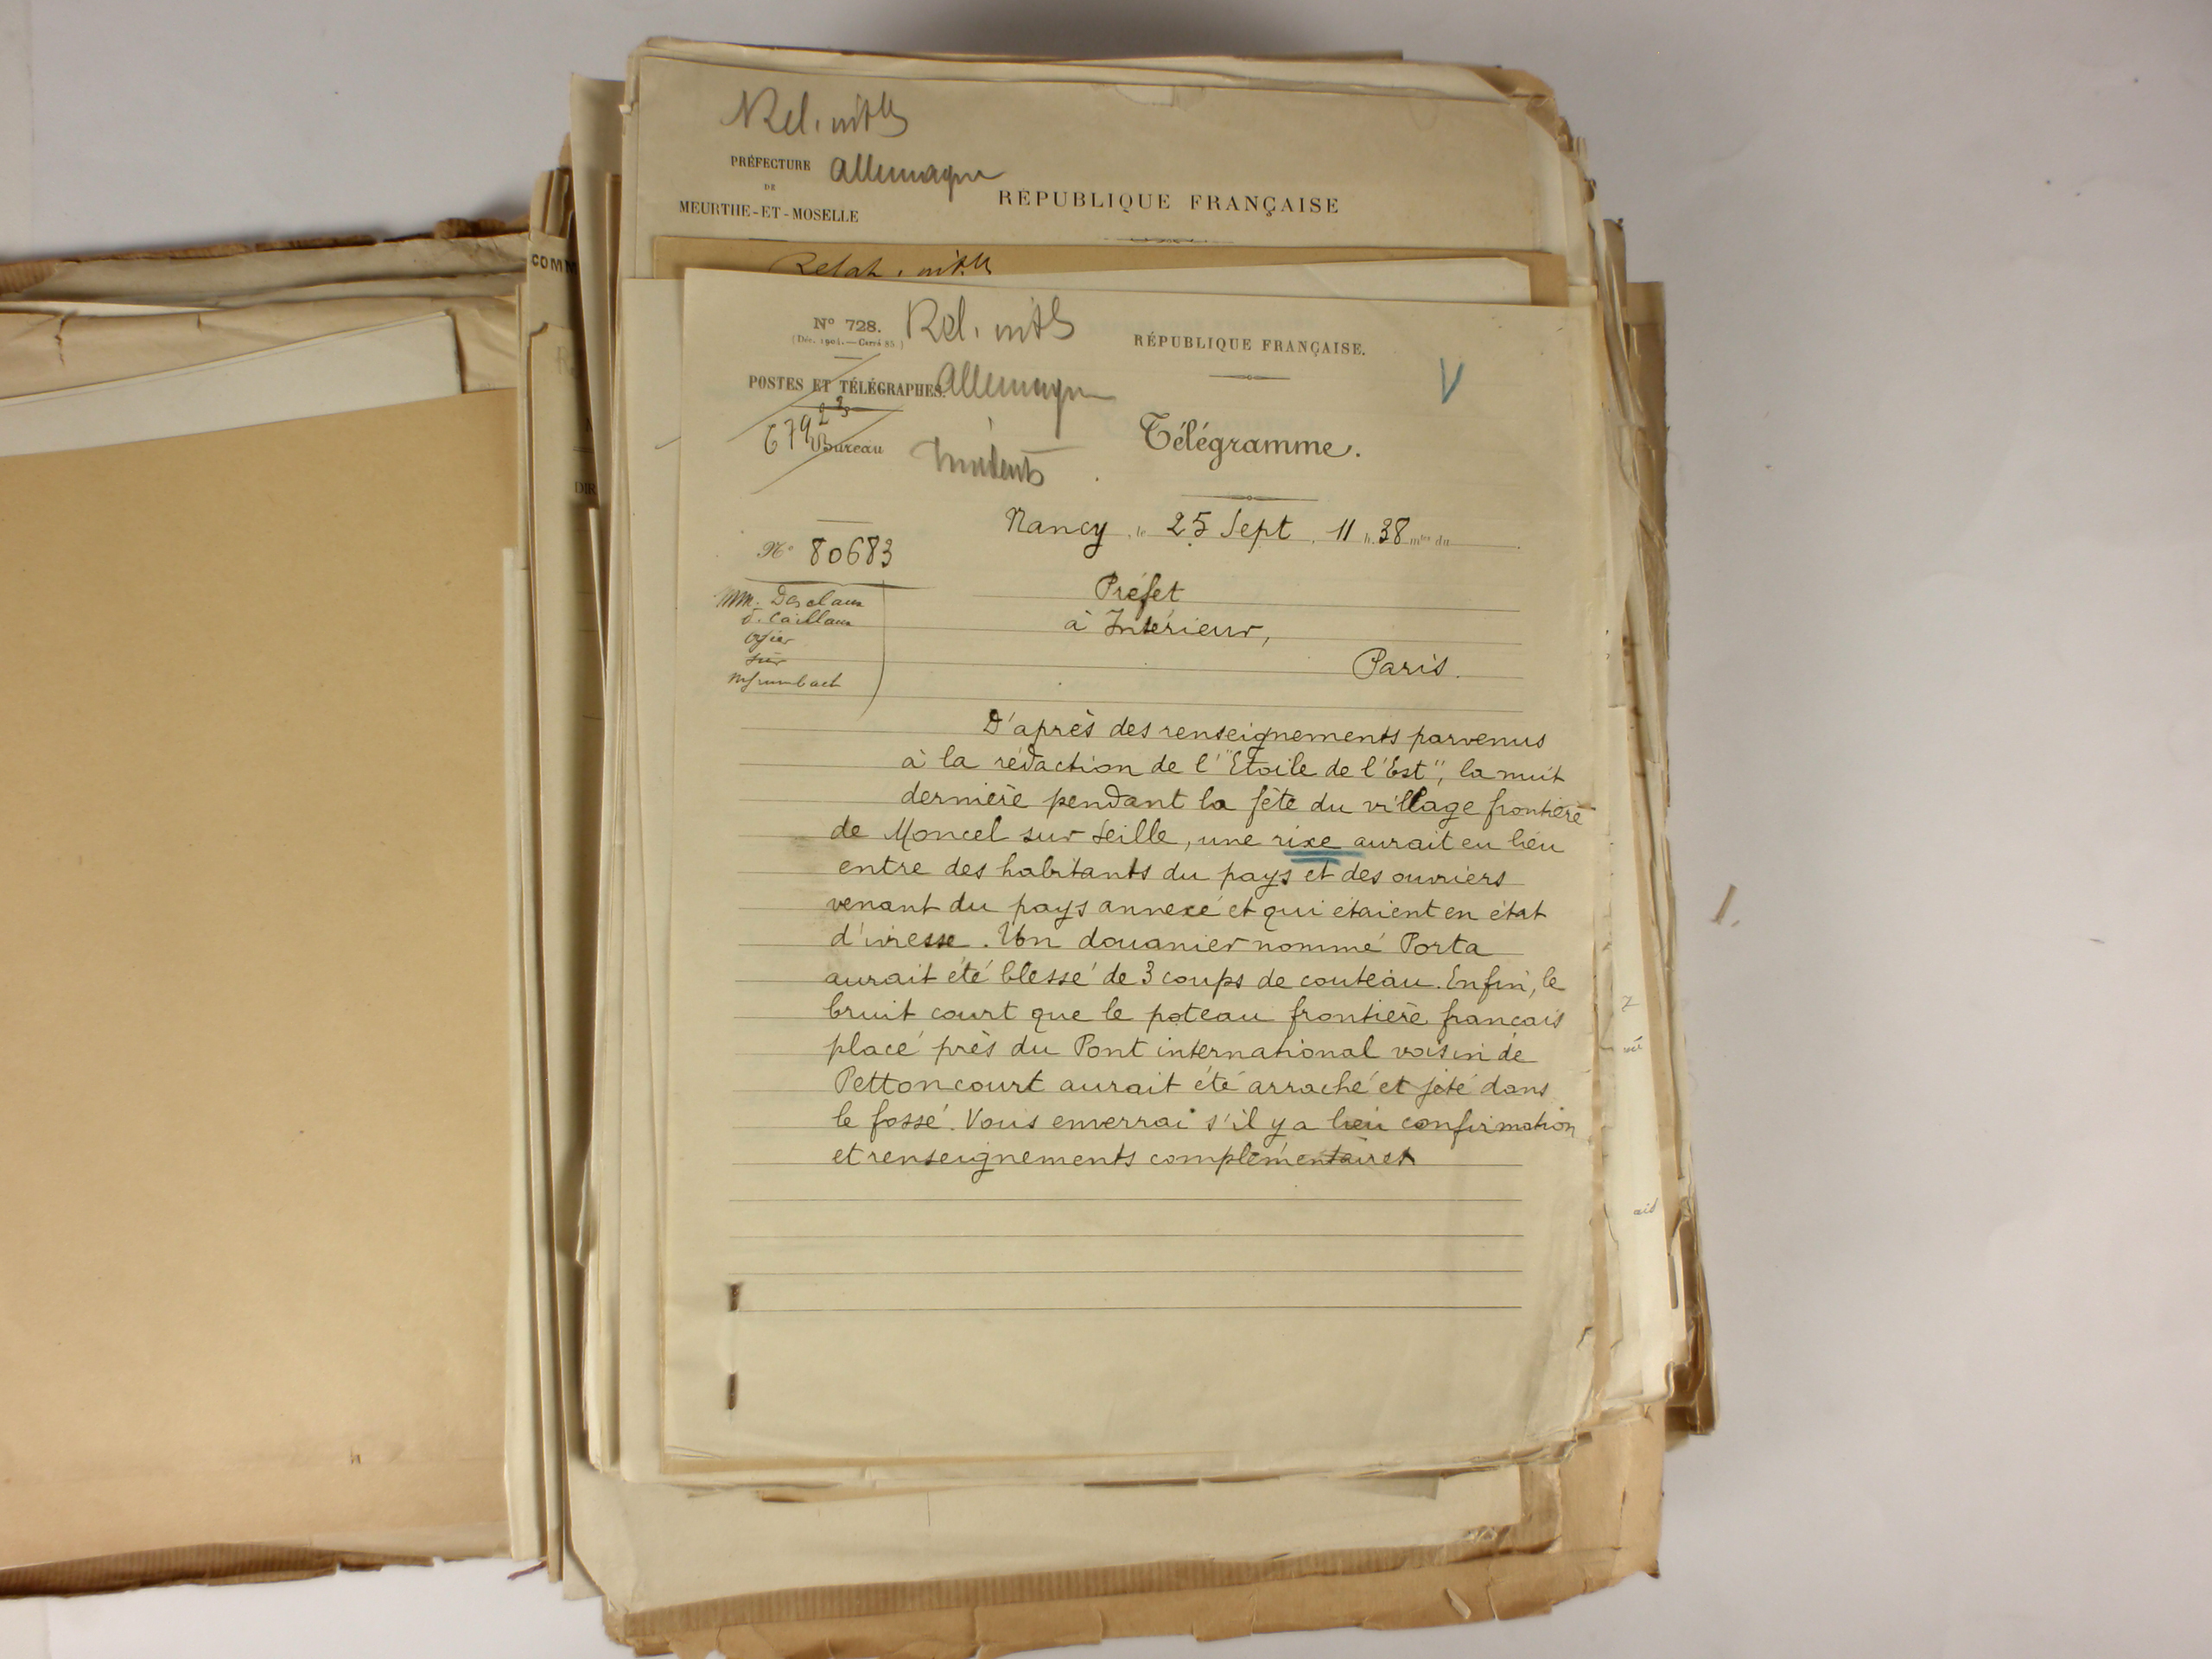 Rel. int^les
PRÉFECTURE Allemagne
DE
MEURTHE-ET-MOSELLE
RÉPUBLIQUE FRANÇAISE
Relat. int.les
COMM
DIR
N° 728.
(Déc. 1901. — Carré 85.)
Rel. int^les
RÉPUBLIQUE FRANÇAISE.
V
POSTES ET TÉLÉGRAPHES. Allemagne
Bureau
Incidents
Télégramme.
Nancy, le 25 Sept, 11 h. 38 mes du
N° 80683
MM. Desclaux
J. Caillaux
Ogier
Mr Grumbach
Préfet
à Intérieur,
Paris.
D'après des renseignements parvenus
à la rédaction de l'"Etoile de l'Est", la nuit
dernière pendant la fête du village frontière
de Moncel sur Seille, une rixe aurait eu lieu
entre des habitants du pays et des ouvriers
venant du pays annexé et qui étaient en état
d'ivresse. Un douanier nommé Porta
aurait été blessé de 3 coups de couteau. Enfin, le
bruit court que le poteau frontière français
placé près du Pont international voisin de
Pettoncourt aurait été arraché et jeté dans
le fossé. Vous enverrai s'il y a lieu confirmation
et renseignements complémentaires